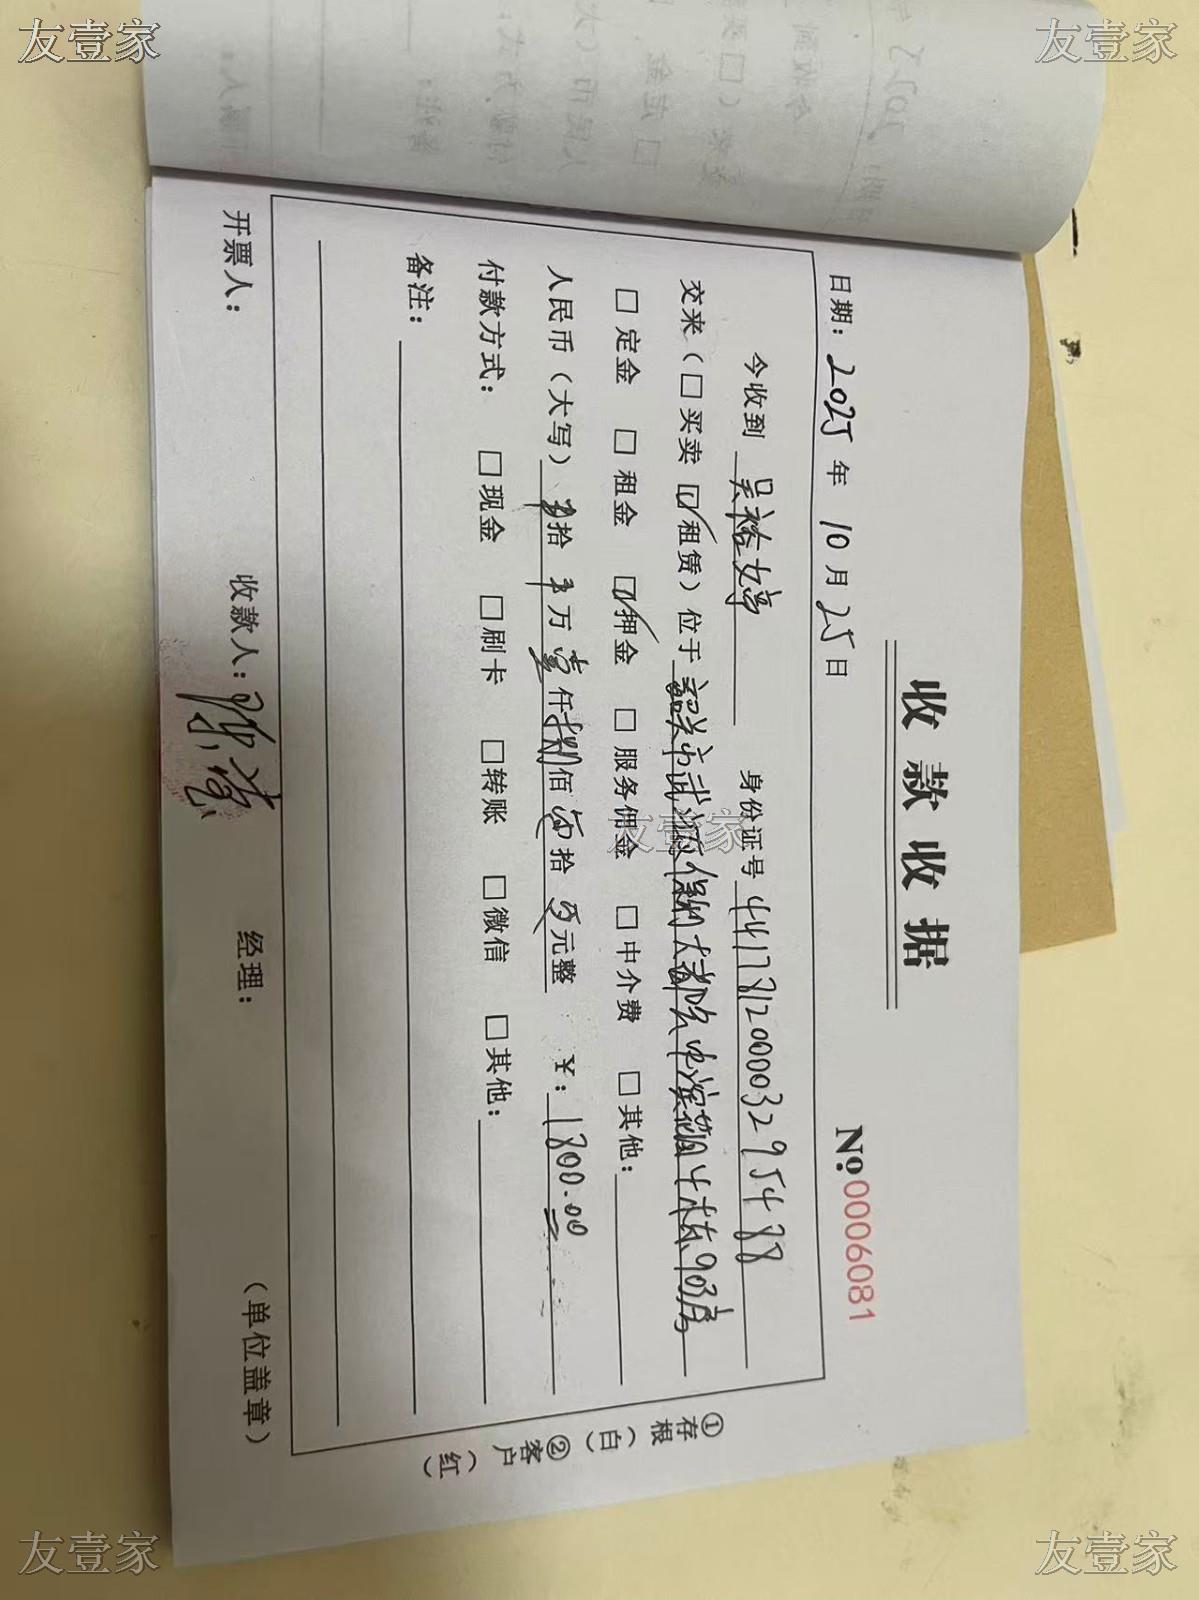 友壹家
友壹家
收款收据
No.0006081
日期：2025年10月25日
今收到 吴裕婷 身份证号 441781200003295488
交来（□买卖 ☑租赁）位于 韶关市武江区保利大都汇 4栋903房
□定金 □租金 ☑押金 □服务佣金 □中介费 □其他：
人民币（大写） 零拾零万壹仟捌佰零拾零元整 ¥：1800.00
付款方式： □现金 □刷卡 □转账 □微信 □其他：
备注：
开票人： 收款人： 经理： （单位盖章）
①存根（白） ②客户（红）
友壹家
友壹家
友壹家